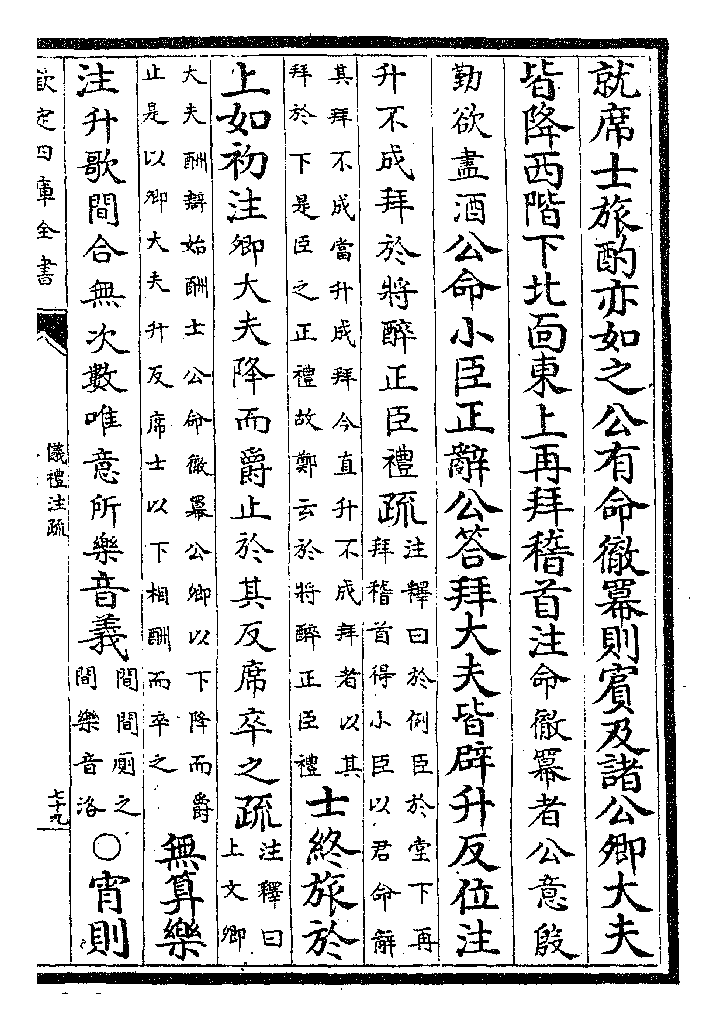 就席士旅酌亦如之公有命徹冪則賓及諸公卿大夫
皆降西階下北面東上再拜稽首注命徹冪者公意殷
勤欲盡酒公命小臣正辭公答拜大夫皆辟升反位注
升不成拜於將醉正臣禮疏
注釋曰於例臣於堂下再
拜稽首得小臣以君命辭
其拜不成當升成拜今直升不成拜者以其
拜於下是臣之正禮故鄭云於將醉正臣禮
士終旅於
上如初注卿大夫降而爵止於其反席卒之疏
注釋曰
上文卿
大夫酬辯始酬士公命徹冪公卿以下降而爵
止是以卿大夫升反席士以下相酬而卒之
無算樂
注升歌間合無次數唯意所樂音義
間間廁之
間樂音洛
○宵則
欽定四庫全書
儀禮注疏
七十九